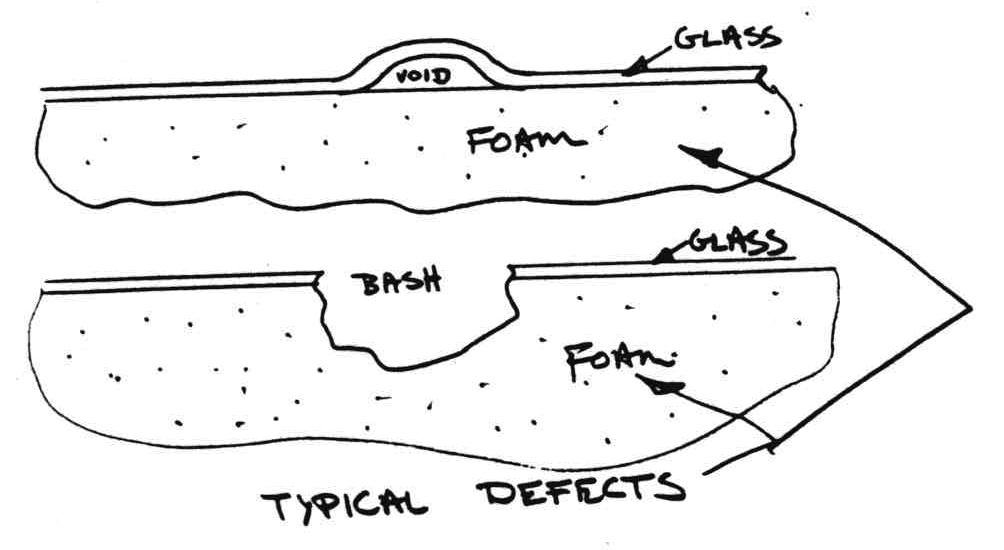 GLASS
VOID
FOAM
GLASS
BASH
FOAM
TYPICAL DEFECTS